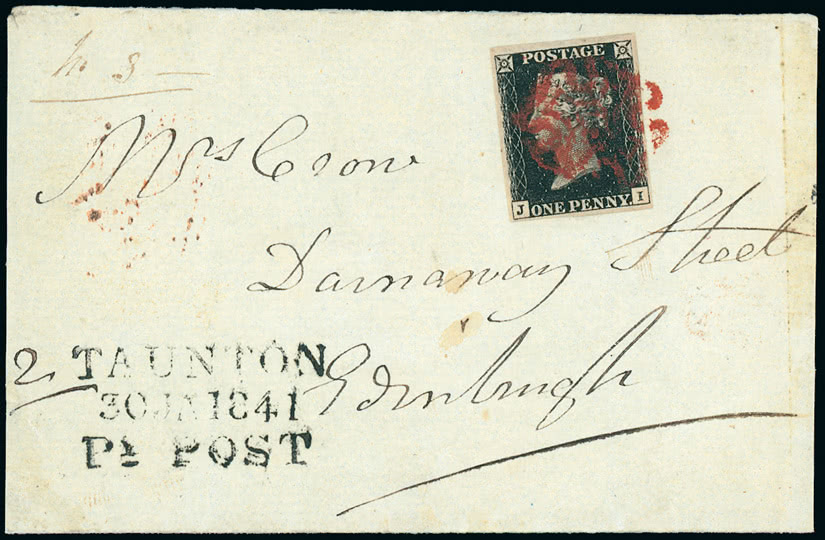 No 3
POSTAGE
J ONE PENNY I
Mrs Crow
Darnaway Street
2 Edinburgh
TAUNTON
30 JA 1841
Py POST